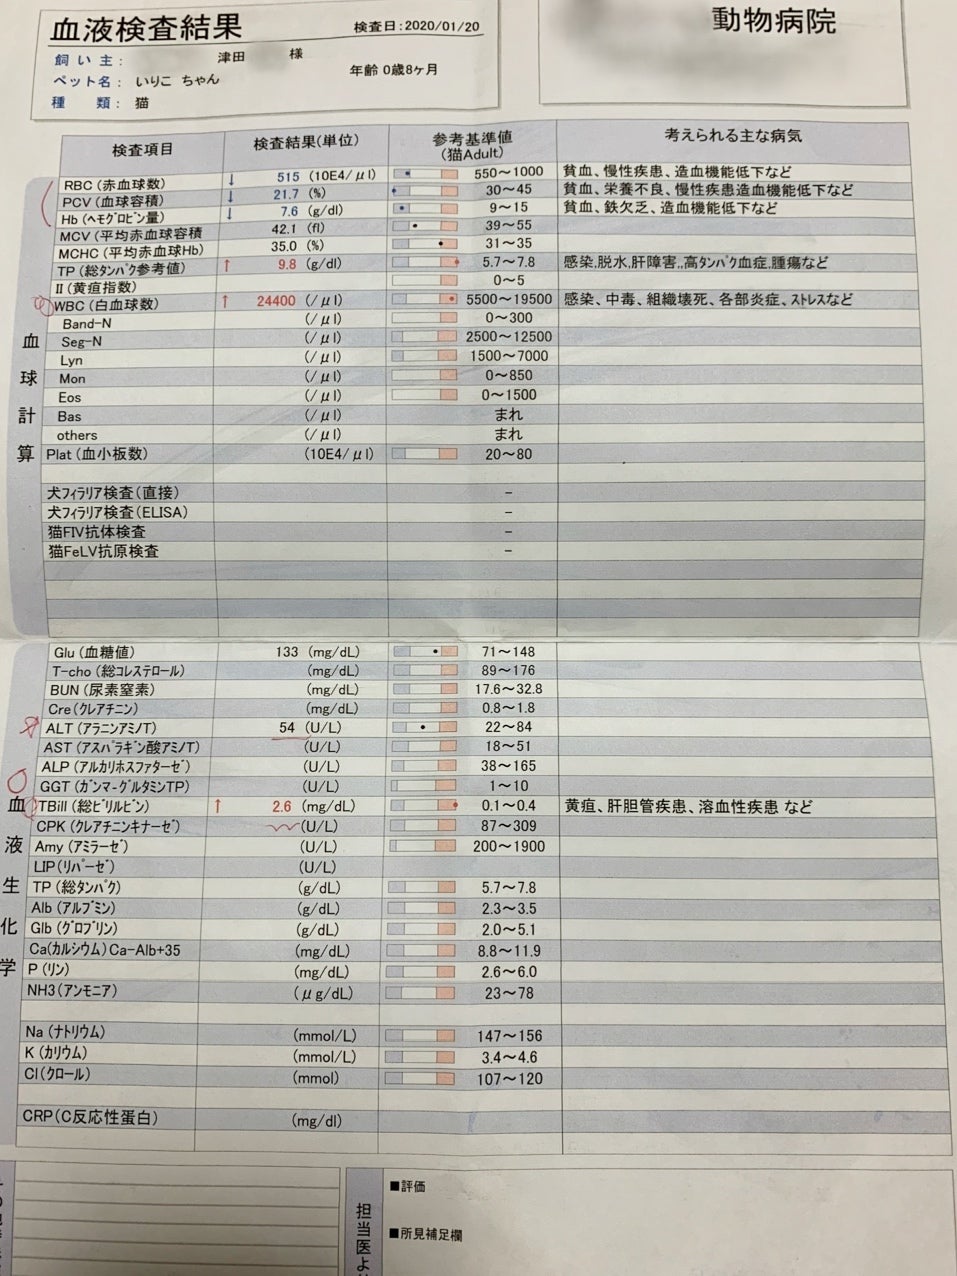 血液検査結果 検査日:2020/01/20
飼い主: 津田 様
ペット名: いりこ ちゃん 年齢 0歳8ヶ月
種 類: 猫
動物病院
検査項目 検査結果(単位) 参考基準値(猫Adult) 考えられる主な病気
血球計算
RBC (赤血球数) ↓ 515 (10E4/μl) 550～1000 貧血、慢性疾患、造血機能低下など
PCV (血球容積) ↓ 21.7 (%) 30～45 貧血、栄養不良、慢性疾患造血機能低下など
Hb (ヘモグロビン量) ↓ 7.6 (g/dl) 9～15 貧血、鉄欠乏、造血機能低下など
MCV (平均赤血球容積 42.1 (fl) 39～55
MCHC (平均赤血球Hb) 35.0 (%) 31～35
TP (総タンパク参考値) ↑ 9.8 (g/dl) 5.7～7.8 感染,脱水,肝障害,,高タンパク血症,腫瘍など
II (黄疸指数) 0～5
WBC (白血球数) ↑ 24400 (/μl) 5500～19500 感染、中毒、組織壊死、各部炎症、ストレスなど
Band-N (/μl) 0～300
Seg-N (/μl) 2500～12500
Lyn (/μl) 1500～7000
Mon (/μl) 0～850
Eos (/μl) 0～1500
Bas (/μl) まれ
others (/μl) まれ
Plat (血小板数) (10E4/μl) 20～80
犬フィラリア検査(直接) －
犬フィラリア検査(ELISA) －
猫FIV抗体検査 －
猫FeLV抗原検査 －
血液生化学
Glu (血糖値) 133 (mg/dL) 71～148
T-cho (総コレステロール) (mg/dL) 89～176
BUN (尿素窒素) (mg/dL) 17.6～32.8
Cre (クレアチニン) (mg/dL) 0.8～1.8
ALT (アラニンアミノT) 54 (U/L) 22～84
AST (アスパラギン酸アミノT) (U/L) 18～51
ALP (アルカリホスファターゼ) (U/L) 38～165
GGT (ガンマーグルタミンTP) (U/L) 1～10
TBill (総ビリルビン) ↑ 2.6 (mg/dL) 0.1～0.4 黄疸、肝胆管疾患、溶血性疾患 など
CPK (クレアチニンキナーゼ) (U/L) 87～309
Amy (アミラーゼ) (U/L) 200～1900
LIP(リパーゼ) (U/L)
TP (総タンパク) (g/dL) 5.7～7.8
Alb (アルブミン) (g/dL) 2.3～3.5
Glb (グロブリン) (g/dL) 2.0～5.1
Ca(カルシウム) Ca-Alb+35 (mg/dL) 8.8～11.9
P (リン) (mg/dL) 2.6～6.0
NH3 (アンモニア) (μg/dL) 23～78
Na (ナトリウム) (mmol/L) 147～156
K (カリウム) (mmol/L) 3.4～4.6
Cl (クロール) (mmol) 107～120
CRP (C反応性蛋白) (mg/dl)
担当医より
■評価
■所見補足欄